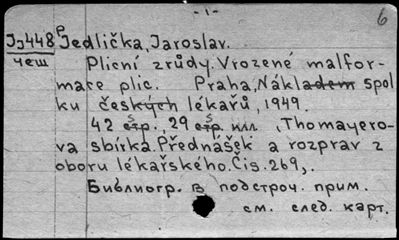 - 1 -
6
Jj448 P Jedlička, Jaroslav.
чеш Plicní zrůdy. Vrozené malfor-
mace plic. Praha, Nákladem spol
ku českých lékařů, 1949.
42 s., 29 s. илл. (Thomayero-
va sbírka Přednášek a rozprav z
oboru lékařského. Čís. 269,.
Библиогр. в подстроч. прим.
см. след. карт.